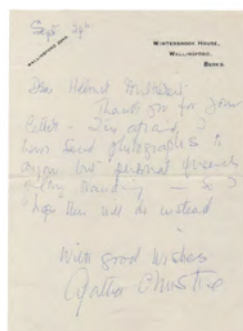 Sept 29th
WALLINGFORD 2248
WINTERBROOK HOUSE,
WALLINGFORD,
BERKS.
Dear Helmut
Thank you for your
letter - I'm afraid, I
never send photographs to
anyone but personal friends
of long standing - so I
hope this will do instead
With good wishes
Agatha Christie